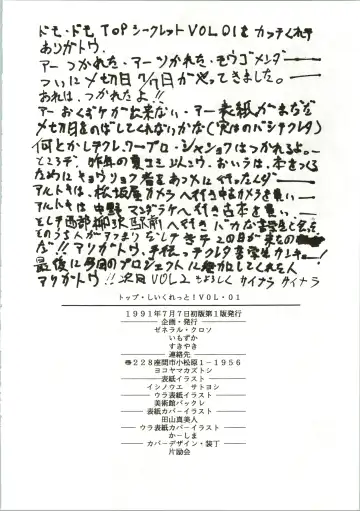 ドモ・ドモ TOPシークレット VOL 01を カッテくれテ
ありがトウ.
アー つかれた・アー ツかれた・モウゴメンダー
ついに〆切日7/9日がやってきました。
おれは、つかれたよ!!
アー おくづケが出来ない・アー表紙がまだだ
〆切日をのばしてくれないかな(実はのバシテクレタ)
何とかしテクレ、ワープロ・
はつかれるよ。
ところデ、昨年の夏コミ以ユウ、おいらは、本をつくる
ためにキョウリョク者をあつメに行ったんダ
アルトキは、松坂屋カメラへ行き中古カメラを買い、
アルトキは中野マンダラケへ行き古本を買い、
そしテ西部柳沢駅前へ行き バカな
アリガトウ、手伝ってクレタ
最後に今回のプロジェクトに参加してくれた人
アリガトウ!! 次回VOL 2もよろしく サイナラ サイナラ
トップ・しいくれっと!VOL・01
1991年7月7日初版第1版発行
企画・発行
ゼネラル・クロソ
いもずか
すきやき
連絡先
228座間市小松原1-1956
ヨコヤマカズトシ
表紙イラスト
イシノウエ サトヨシ
ウラ表紙イラスト
美術館バックレ
表紙カバーイラスト
田山真美人
ウラ表紙カバーイラスト
かーしま
カバーデザイン・装丁
片励会